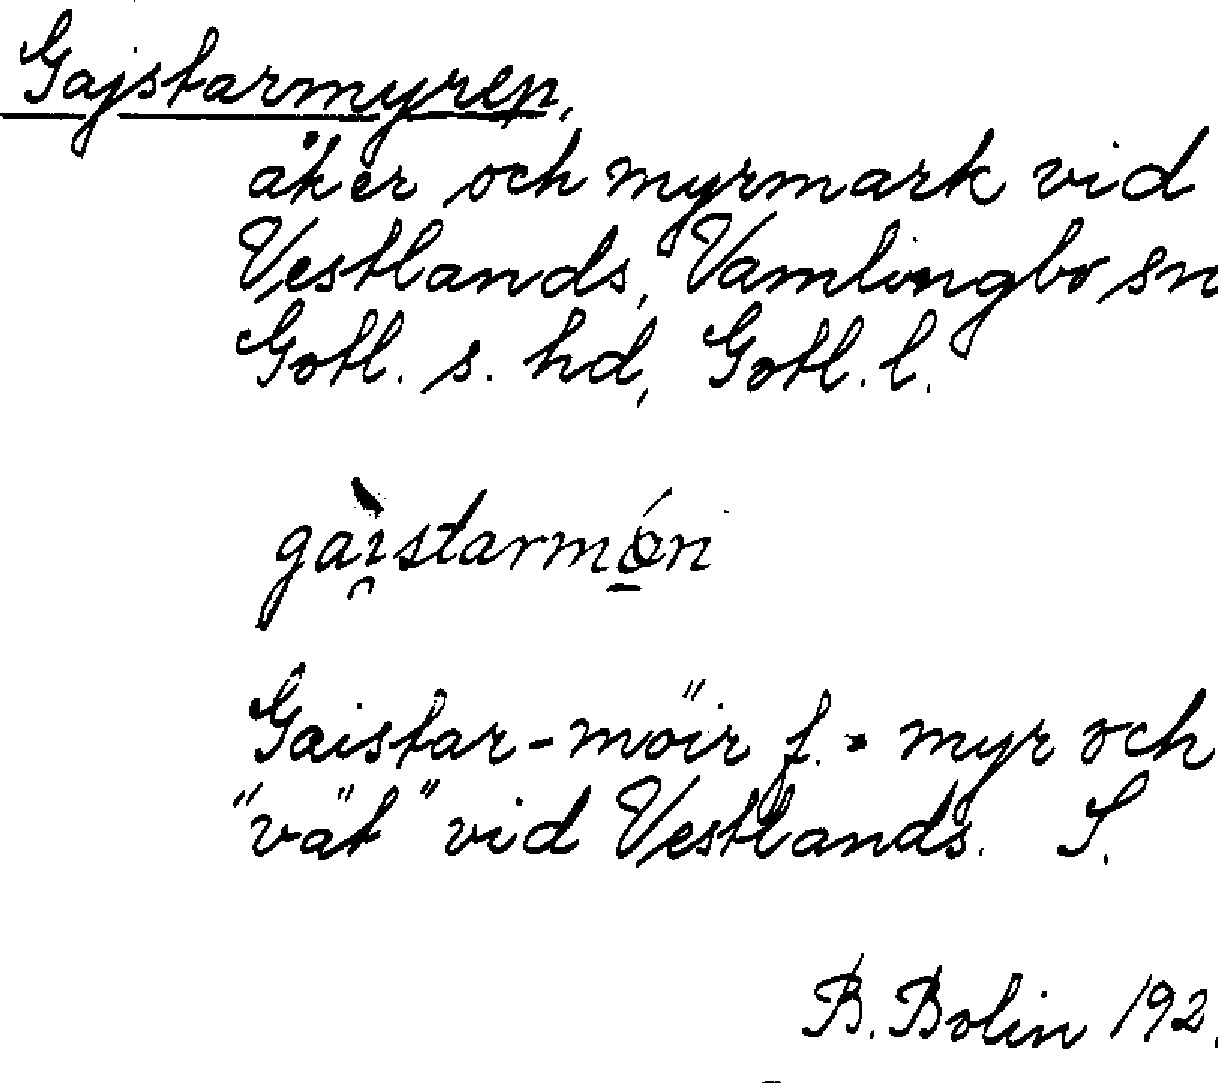 Gajstarmyren,
åker och myrmark vid
Vestlands, Vamlingbo sn
Gotl. s. hd, Gotl. l.
Gaistar-möir f. = myr och
"vät" vid Vestlands. S.
B. Bolin 192.